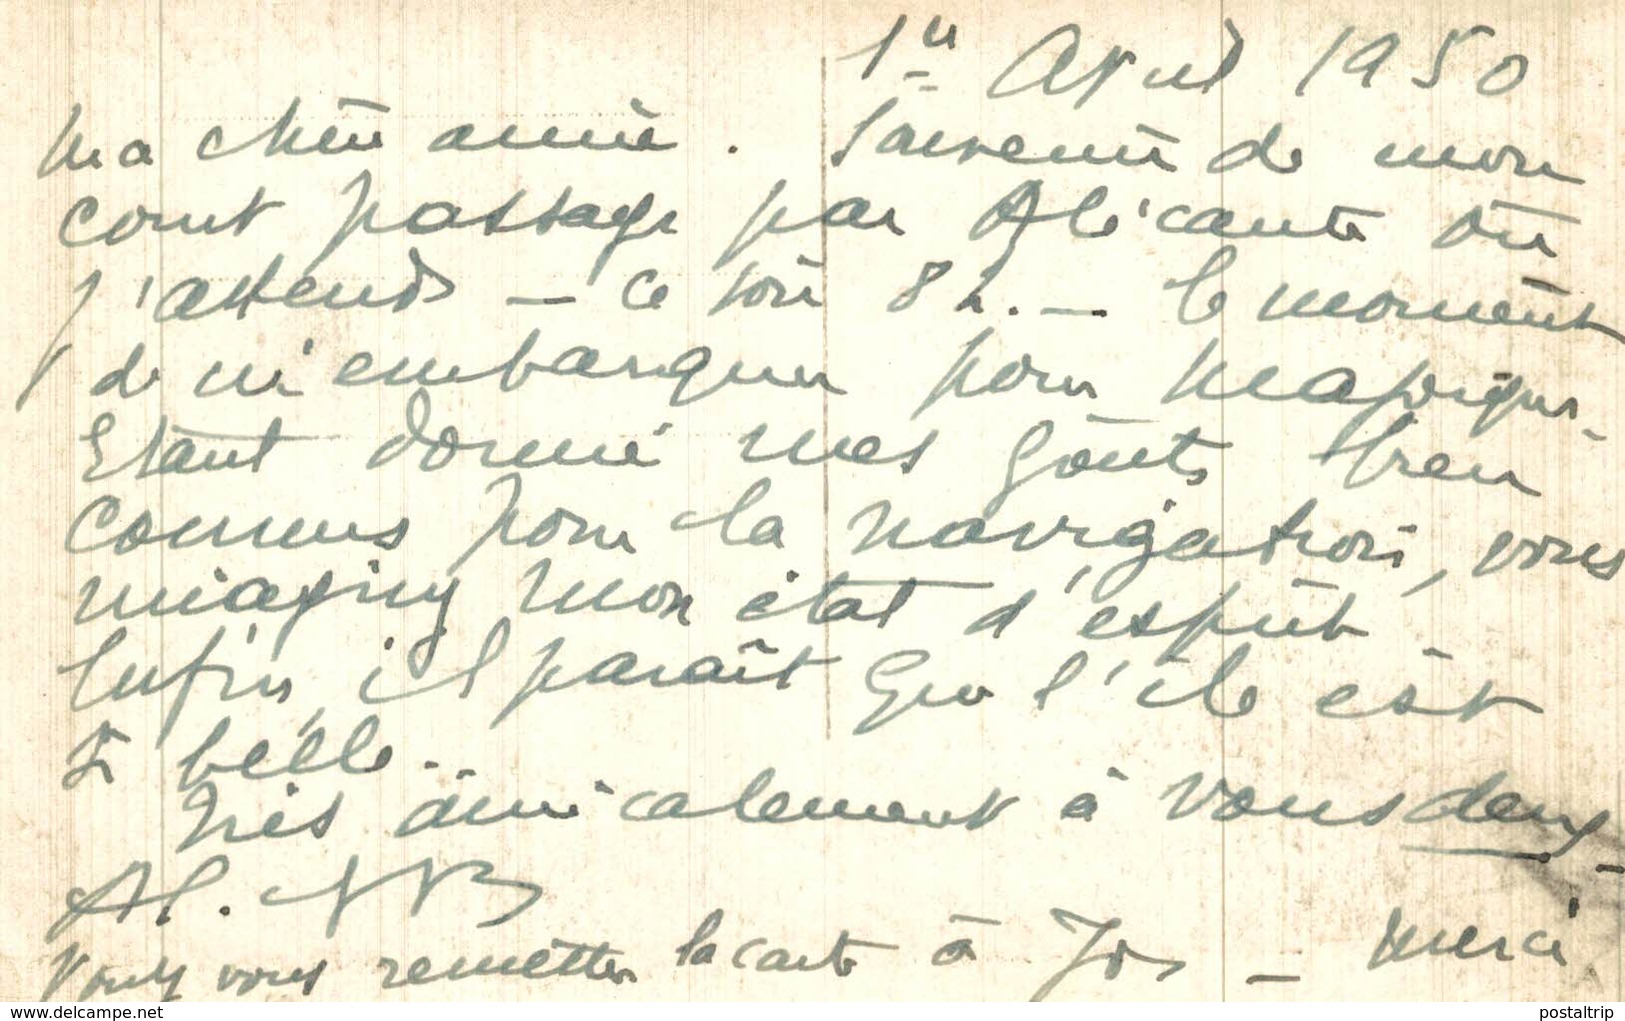 1er April 1950
Ma chère amie. Souvenir de mon
court passage par Alicante où
j'attends – ce soir 8 h. – le moment
de m'embarquer pour Majorque.
Etant donné mes goûts bien
connus pour la navigation, vous
imaginez mon état d'esprit.
Enfin, il paraît que l'île est
si belle..
Très amicalement à vous deux –
Al.
Voulez vous remettre la carte à Jos – Merci
www.delcampe.net
postaltrip